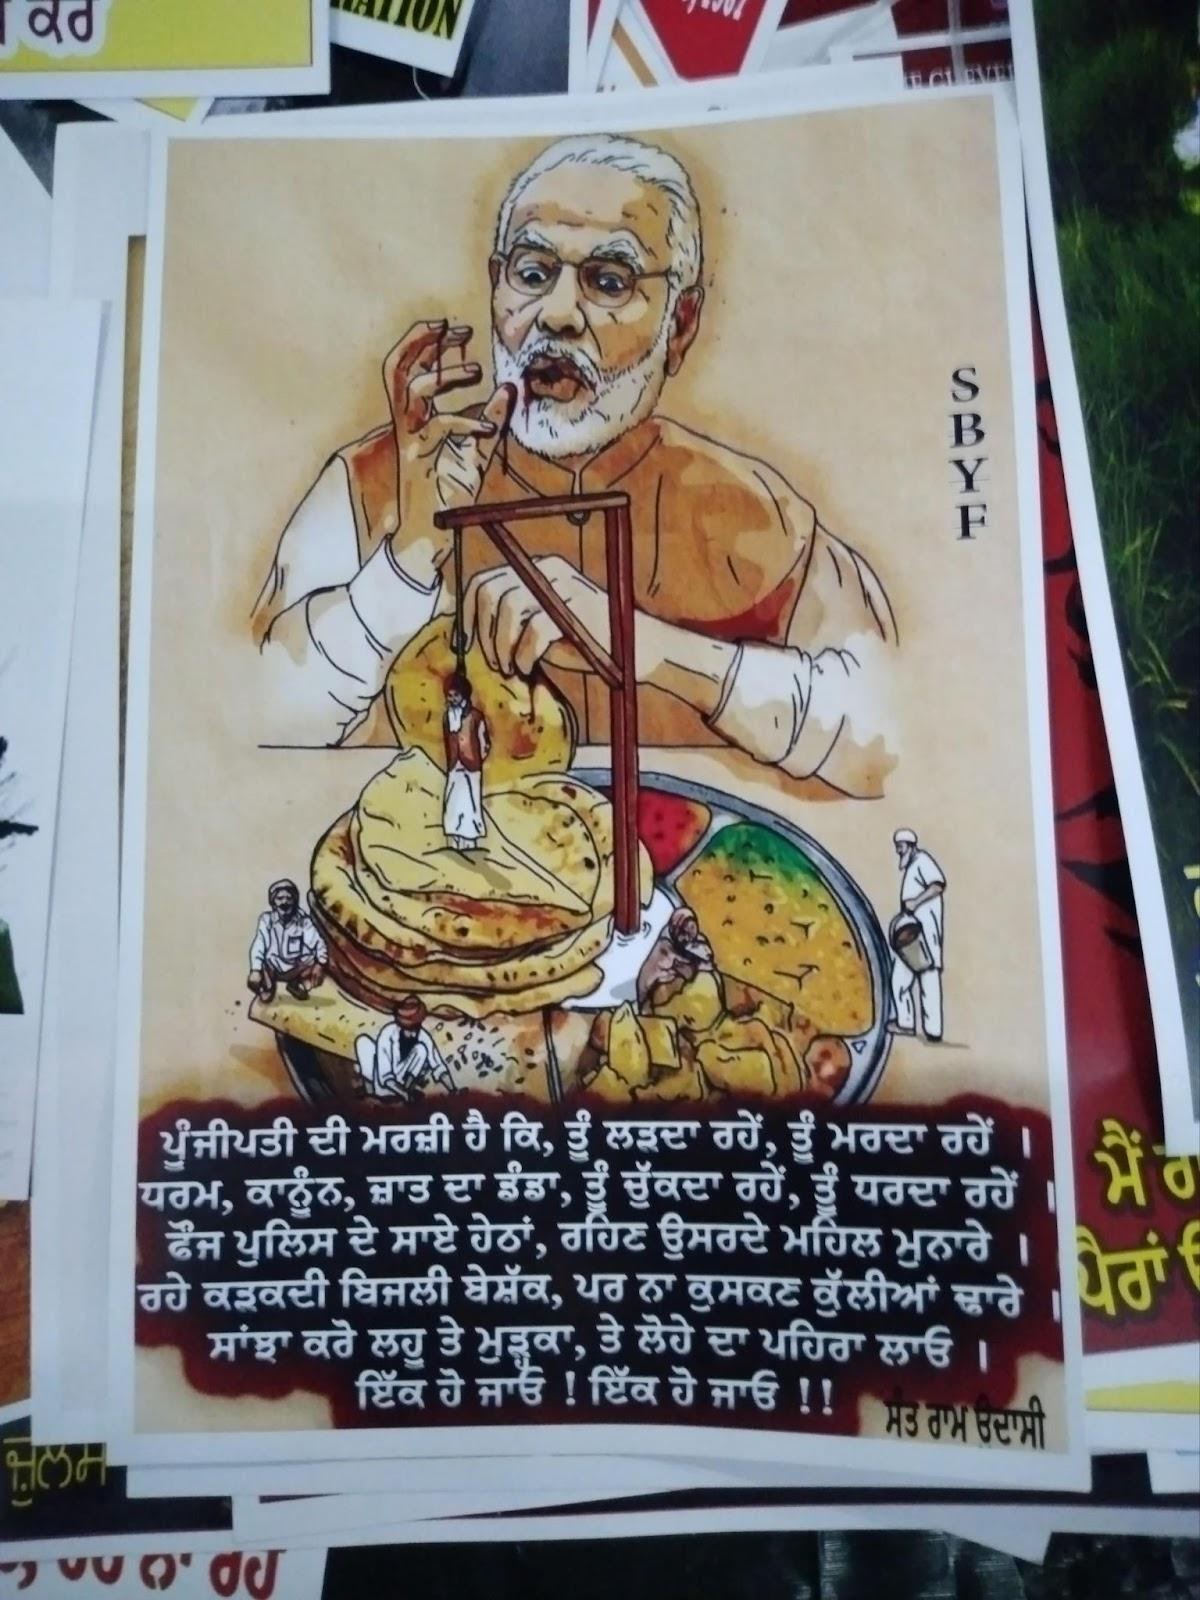 ਕਰੋ
RATION
SBYF
ਪੂੰਜੀਪਤੀ ਦੀ ਮਰਜ਼ੀ ਹੈ ਕਿ, ਤੂੰ ਲੜਦਾ ਰਹੇਂ, ਤੂੰ ਮਰਦਾ ਰਹੇਂ ।
ਧਰਮ, ਕਾਨੂੰਨ, ਜ਼ਾਤ ਦਾ ਡੰਡਾ, ਤੂੰ ਚੁੱਕਦਾ ਰਹੇਂ, ਤੂੰ ਧਰਦਾ ਰਹੇਂ ।
ਫੌਜ ਪੁਲਿਸ ਦੇ ਸਾਏ ਹੇਠਾਂ, ਰਹਿਣ ਉਸਰਦੇ ਮਹਿਲ ਮੁਨਾਰੇ ।
ਰਹੇ ਕੜਕਦੀ ਬਿਜਲੀ ਬੇਸ਼ੱਕ, ਪਰ ਨਾ ਕੁਸਕਣ ਕੁੱਲੀਆਂ ਢਾਰੇ ।
ਸਾਂਝਾ ਕਰੋ ਲਹੂ ਤੇ ਮੁੜ੍ਹਕਾ, ਤੇ ਲੋਹੇ ਦਾ ਪਹਿਰਾ ਲਾਓ ।
ਇੱਕ ਹੋ ਜਾਓ ! ਇੱਕ ਹੋ ਜਾਓ !!
ਸੰਤ ਰਾਮ ਉਦਾਸੀ
ਮੈਂ
ਪੈਰਾਂ
ਜ਼ੁਲਮ
ਨਾ ਰਹੇ